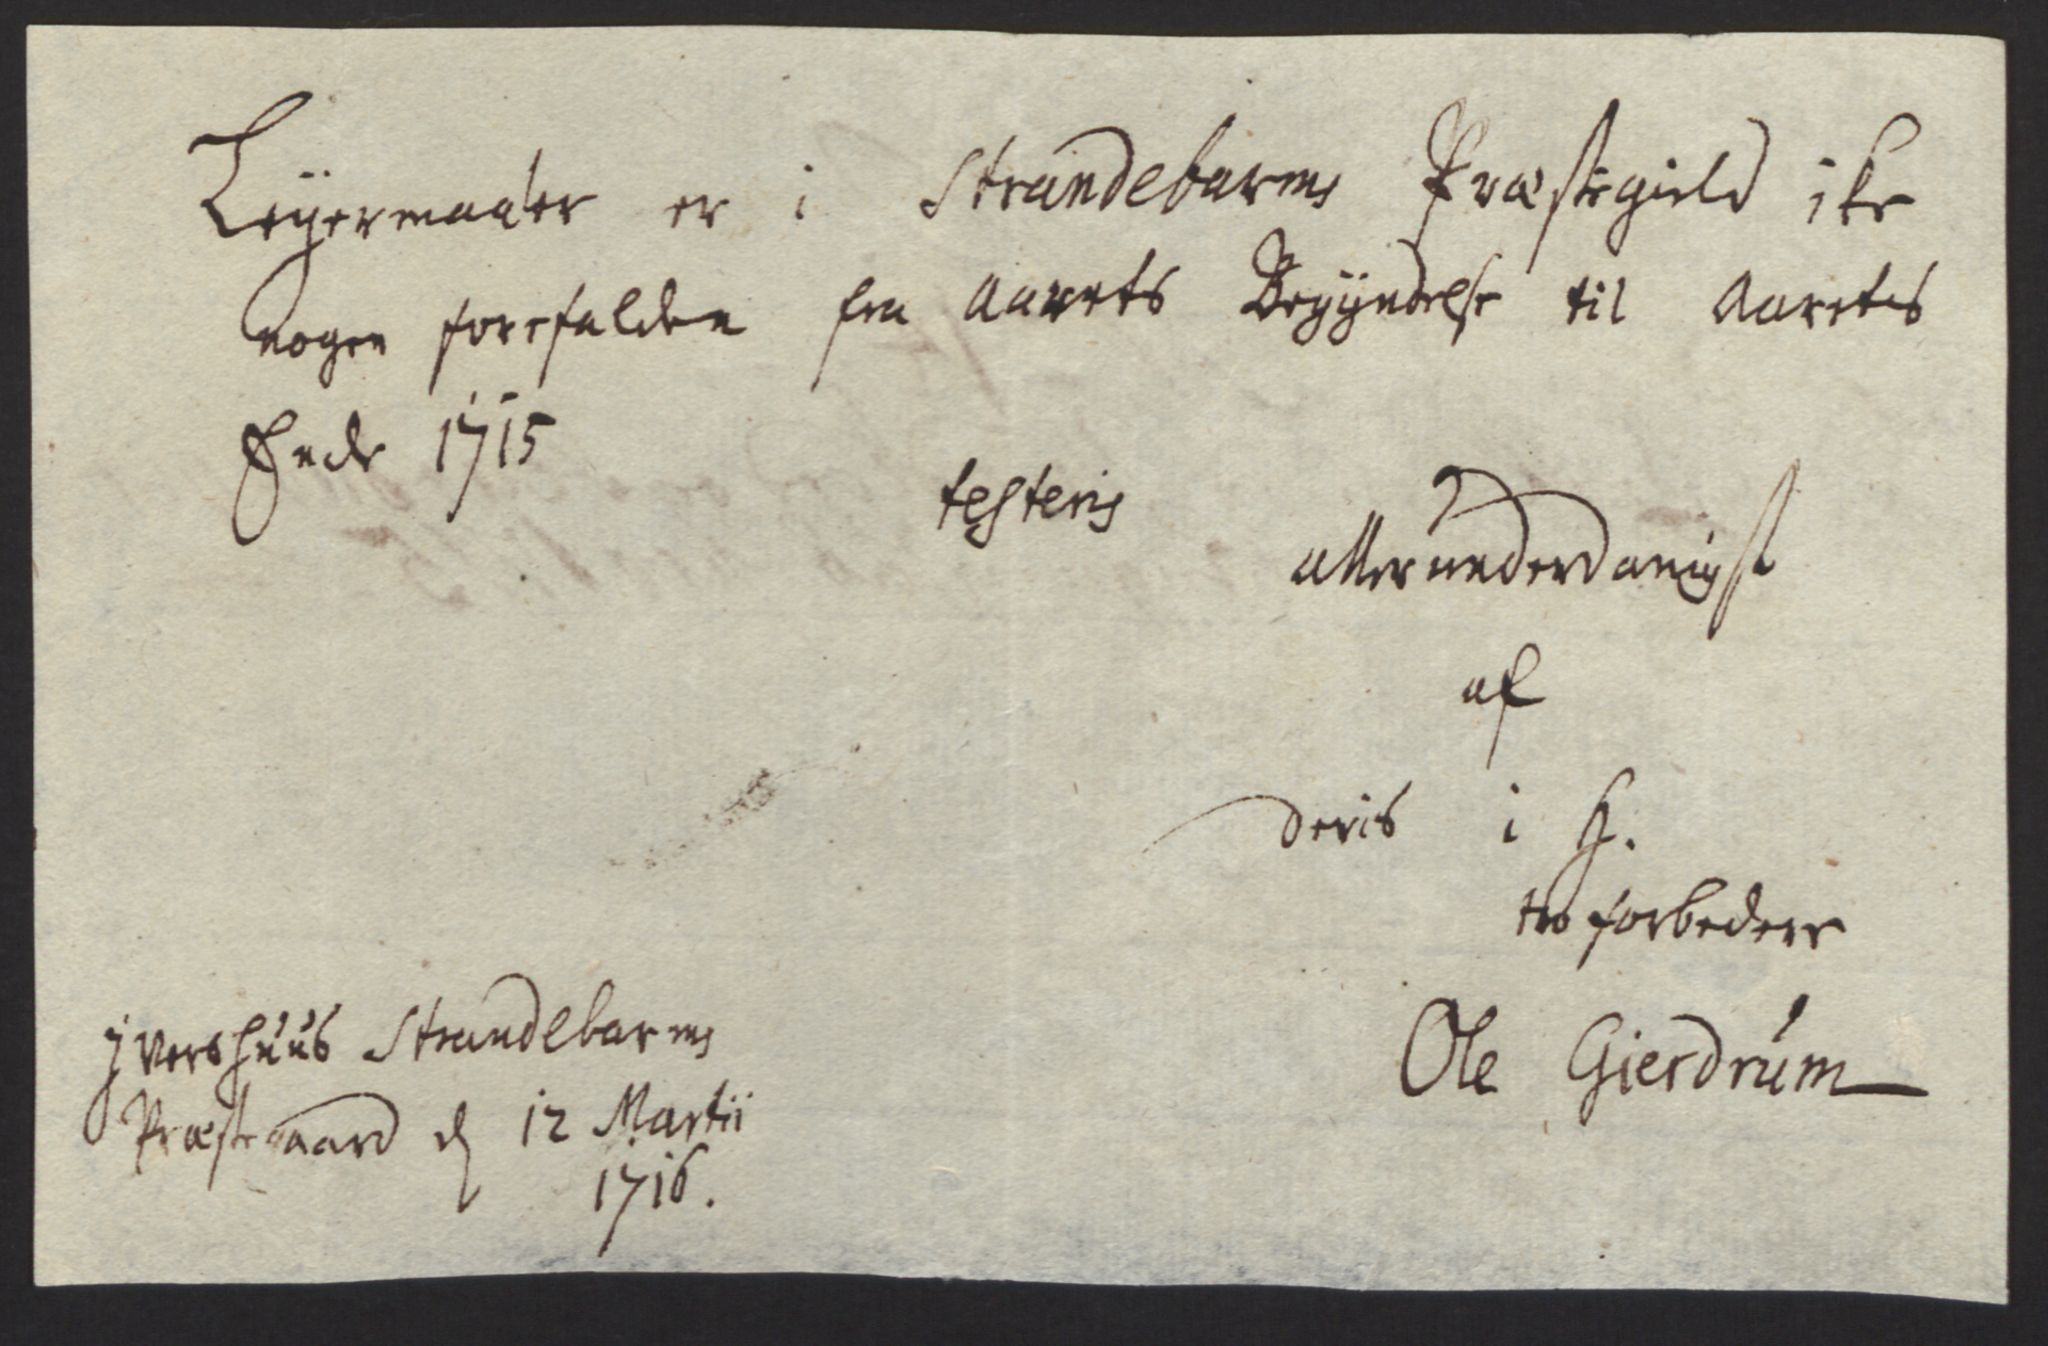 Leÿermaaler er i Strandebarms Præstegield ike
nogen forefalden fra Aarets Begÿndelse til Aarets
Ende 1715
testeris
allerunderdanigst
af
deris i H.
tro forbedere
Ole Gierdrum
Ivershuus Strandebarms
Præstegaard d 12 Martii
1716.